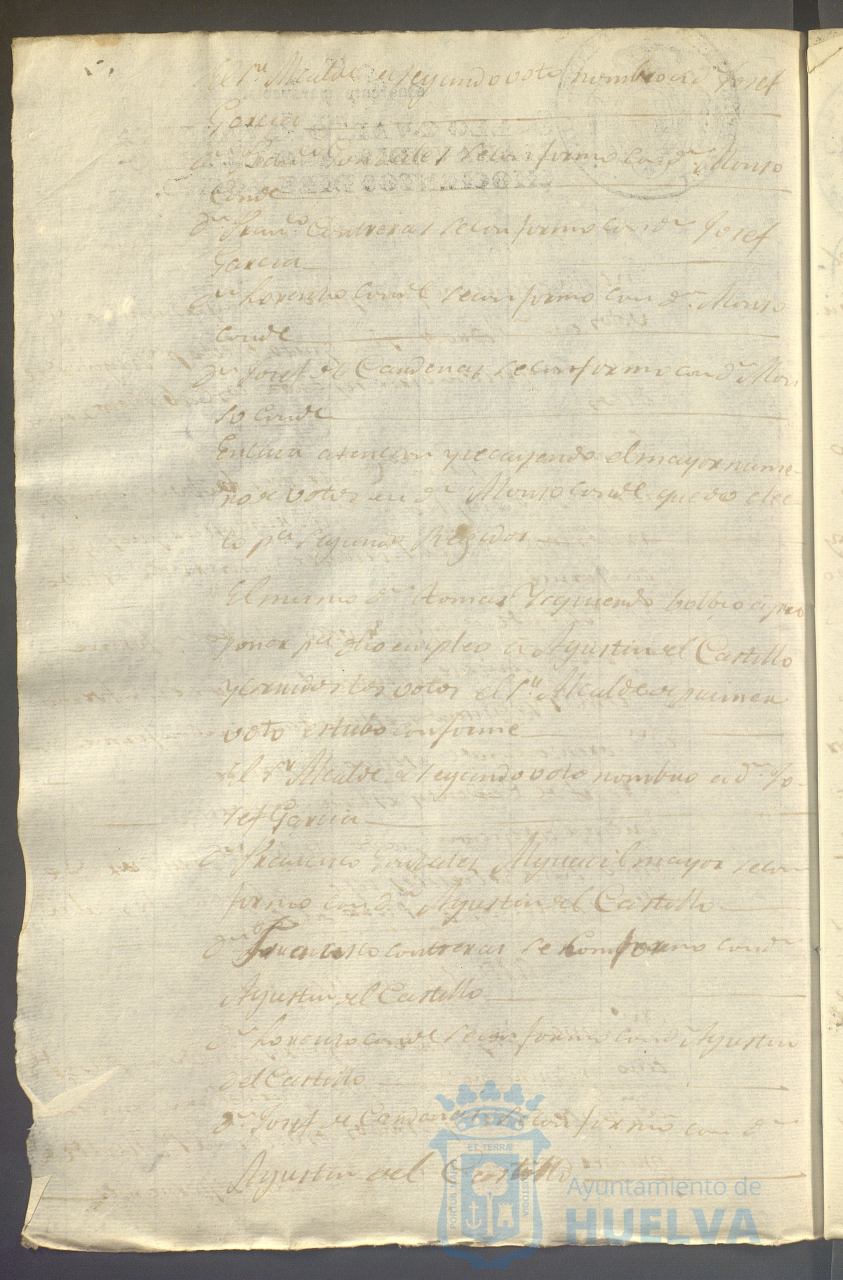 El Sr. Alcalde de segundo voto nombro a dn. Josef
Garcia
dn. Franco. Gonzales se conformo con dn. Alonso
Conde
dn. Franco. Contreras se conformo con dn. Josef
Garcia
dn. Lorenzo Conde se conformo con dn. Alonso
Conde
dn. Josef de Cardenas se conformo con dn. Alon
so Conde
En cuia atencion y recayendo el mayor nume-
ro de votos en dn. Alonso Conde quedo elec
to pa. segundo Regidor
El mismo dn. Tomas Yzquierdo bolbio a pro
poner pa. dho empleo a Agustin del Castillo
y corridos los votos el Sr. Alcalde de primer
voto estubo conforme
El Sr. Alcalde de segundo voto nombro a dn. Jo-
sef Garcia
dn. Francisco Gonzales Alguacil mayor se con
formo con dn. Agustin del Castillo
dn. Francisco Contreras se conformo con dn.
Agustin del Castillo
dn. Lorenzo Conde se conformo con Agustin
del Castillo
dn. Josef de Cardenas se conformo con dn.
Agustin del Castillo
Ayuntamiento de
HUELVA